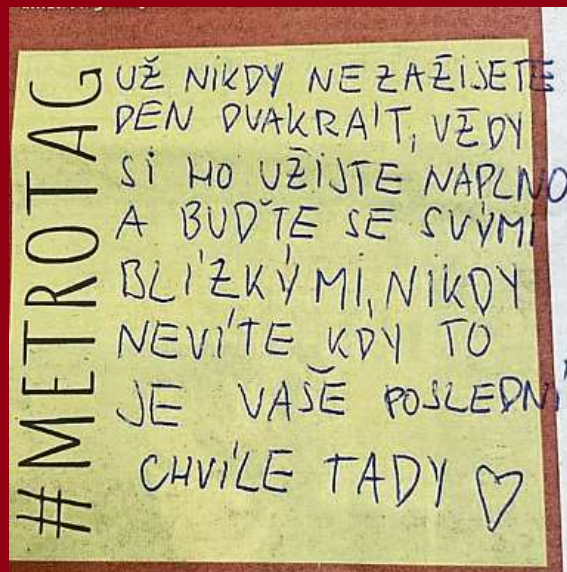 #METROTAG
UŽ NIKDY NEZAŽIJETE
DEN DVAKRÁT, VŽDY
SI HO UŽIJTE NAPLNO
A BUĎTE SE SVÝMI
BLÍZKÝMI, NIKDY
NEVÍTE KDY TO
JE VAŠE POSLEDNÍ
CHVÍLE TADY ♡